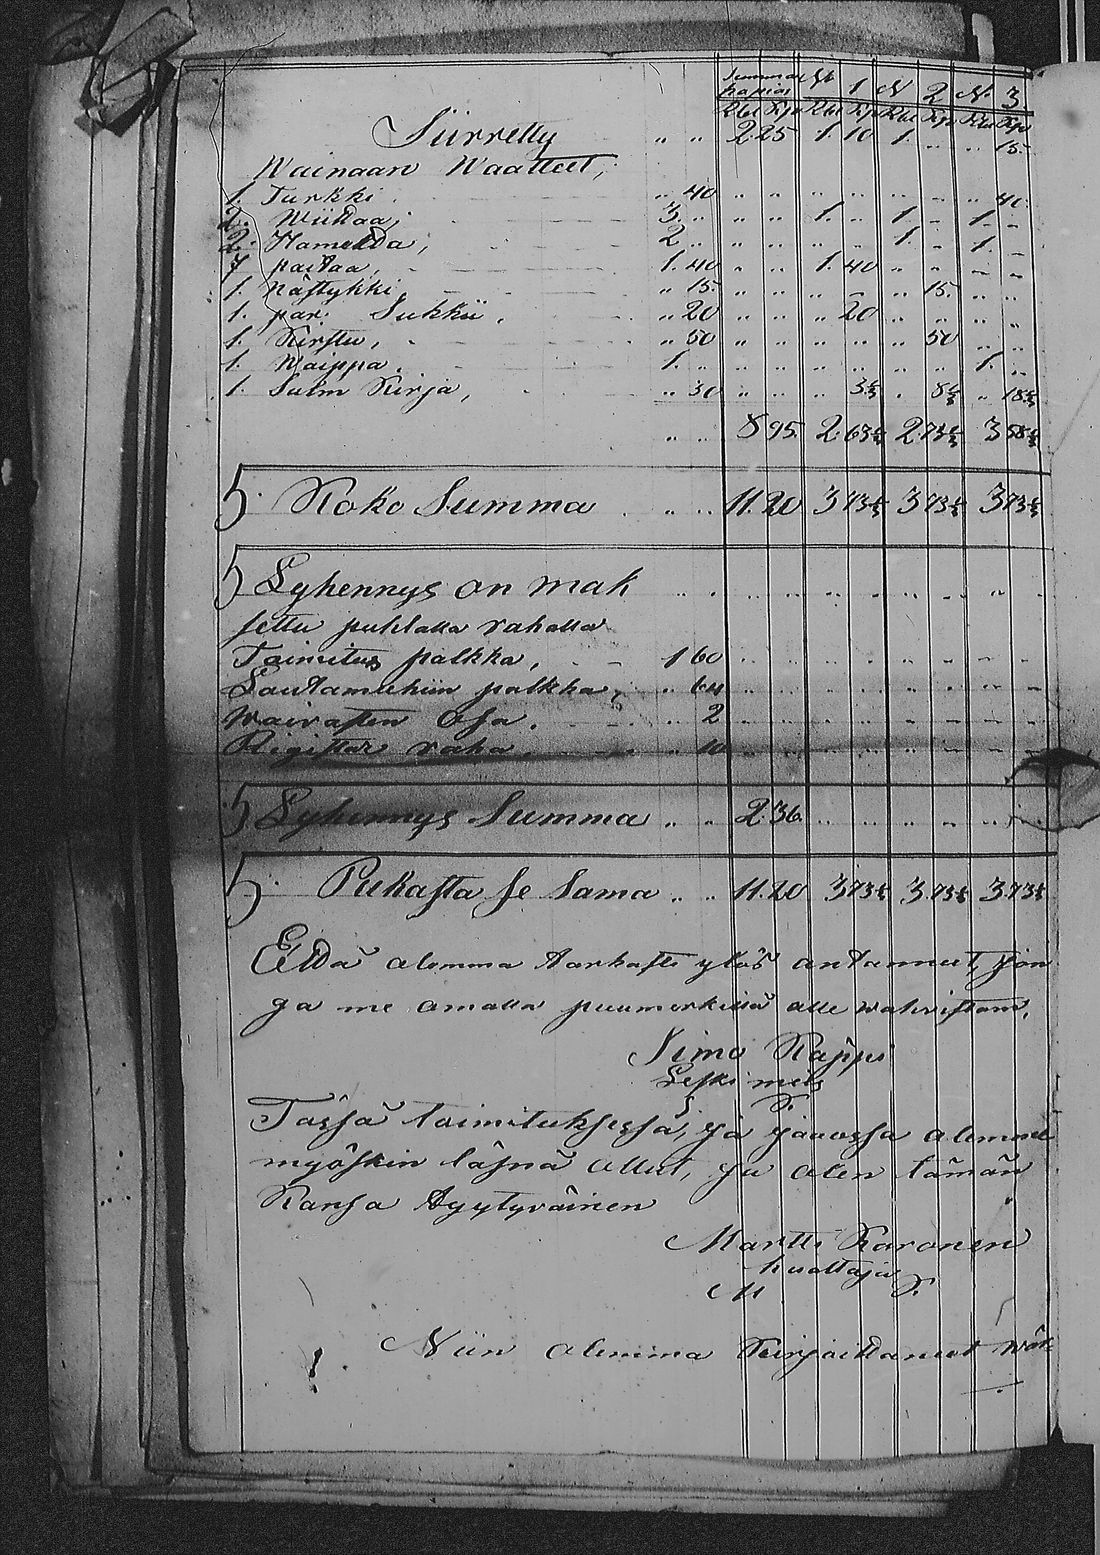 Summa N 1 N 2 N 3
hopias
Rbl Kp Rbl Kp Rbl Kp Rbl Kp
Siirretty „ „ 2 25 1. 10 1. „ „ 15.
Wainaan Waatteet,
1. Turkki „ 40 „ „ „ „ „ „ „ 40.
2. Wiittaa, 3. „ „ „ 1. „ 1 „ 1 „
2. Hametta, 2 „ „ „ „ „ 1. „ 1. „
7 paitaa, 1. 40 „ „ 1. 40 „ „ „ „
1. näftykki „ 15. „ „ „ „ „ 15. „ „
1. par. Sukkii. „ 20 „ „ „ 20 „ „ „ „
1. Kirstu, „ 50 „ „ „ „ „ 50 „ „
1. Waippa. 1. „ „ „ „ „ „ „ 1. „
1. Salm Kirja, „ 30 „ „ „ 3⅓ „ 8⅓ „ 18⅓
„ „ 8 95. 2. 63⅓ 2 73⅓ 3 58⅓
5. Koko Summa „ „ 11. 20 3 73⅓ 3 73⅓ 3 73⅓
5 Lyhennys on mak
settu puhtalla rahalla
Toimitus palkka, 1 60
Lautamiehiin palkka, „ 64
waivasten Osa. „ 2
Rigistar raha. „ 10
5 Lyhennys Summa „ „ 2. 36.
5. Puhasta se Sama „ „ 11. 20 3 73⅓ 3. 73⅓ 3 73⅓
Että olemma tarkasti ylös antanneet, jon
ga me omalla puumerkillä alle wahvistam.
Simo Käppi
Leski mies
S. K.
Tässä toimituksessa, ja jaossa olemme
myöskin läsnä ollut, ja olen tämän
Kansa tyytyväinen
Martti Karonen
huoltaja
M K.
Niin olemma Kirjoittaneet wäk